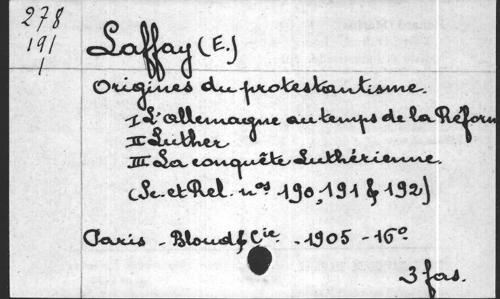 278
191
1
Laffay (E.)
Origines du protestantisme.
I L'allemagne au temps de la Réform
II Luther
III La conquête Luthérienne.
(Sc. et Rel. nos 190, 191 & 192)
Paris - Bloud & Cie. - 1905 - 16o
3 fas.